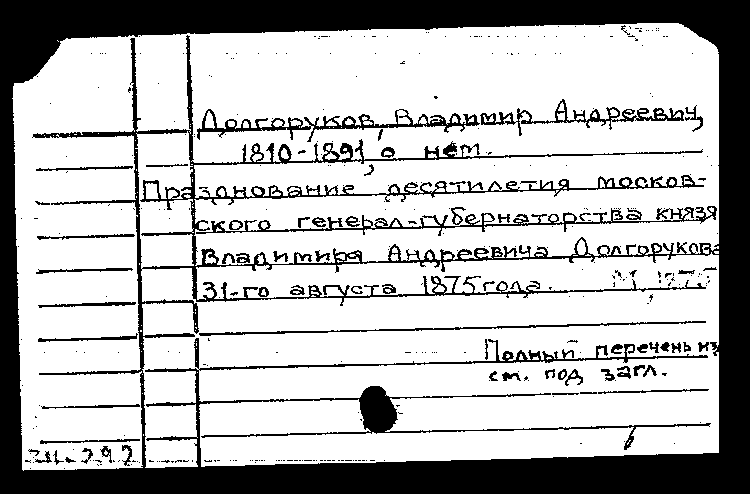 Долгоруков, Владимир Андреевич,
1810-1891, о нем.
Празднование десятилетия москов-
ского генерал-губернаторства князя
Владимира Андреевича Долгорукова
31-го августа 1875 года. М., 1875
Полный перечень из
см. под загл.